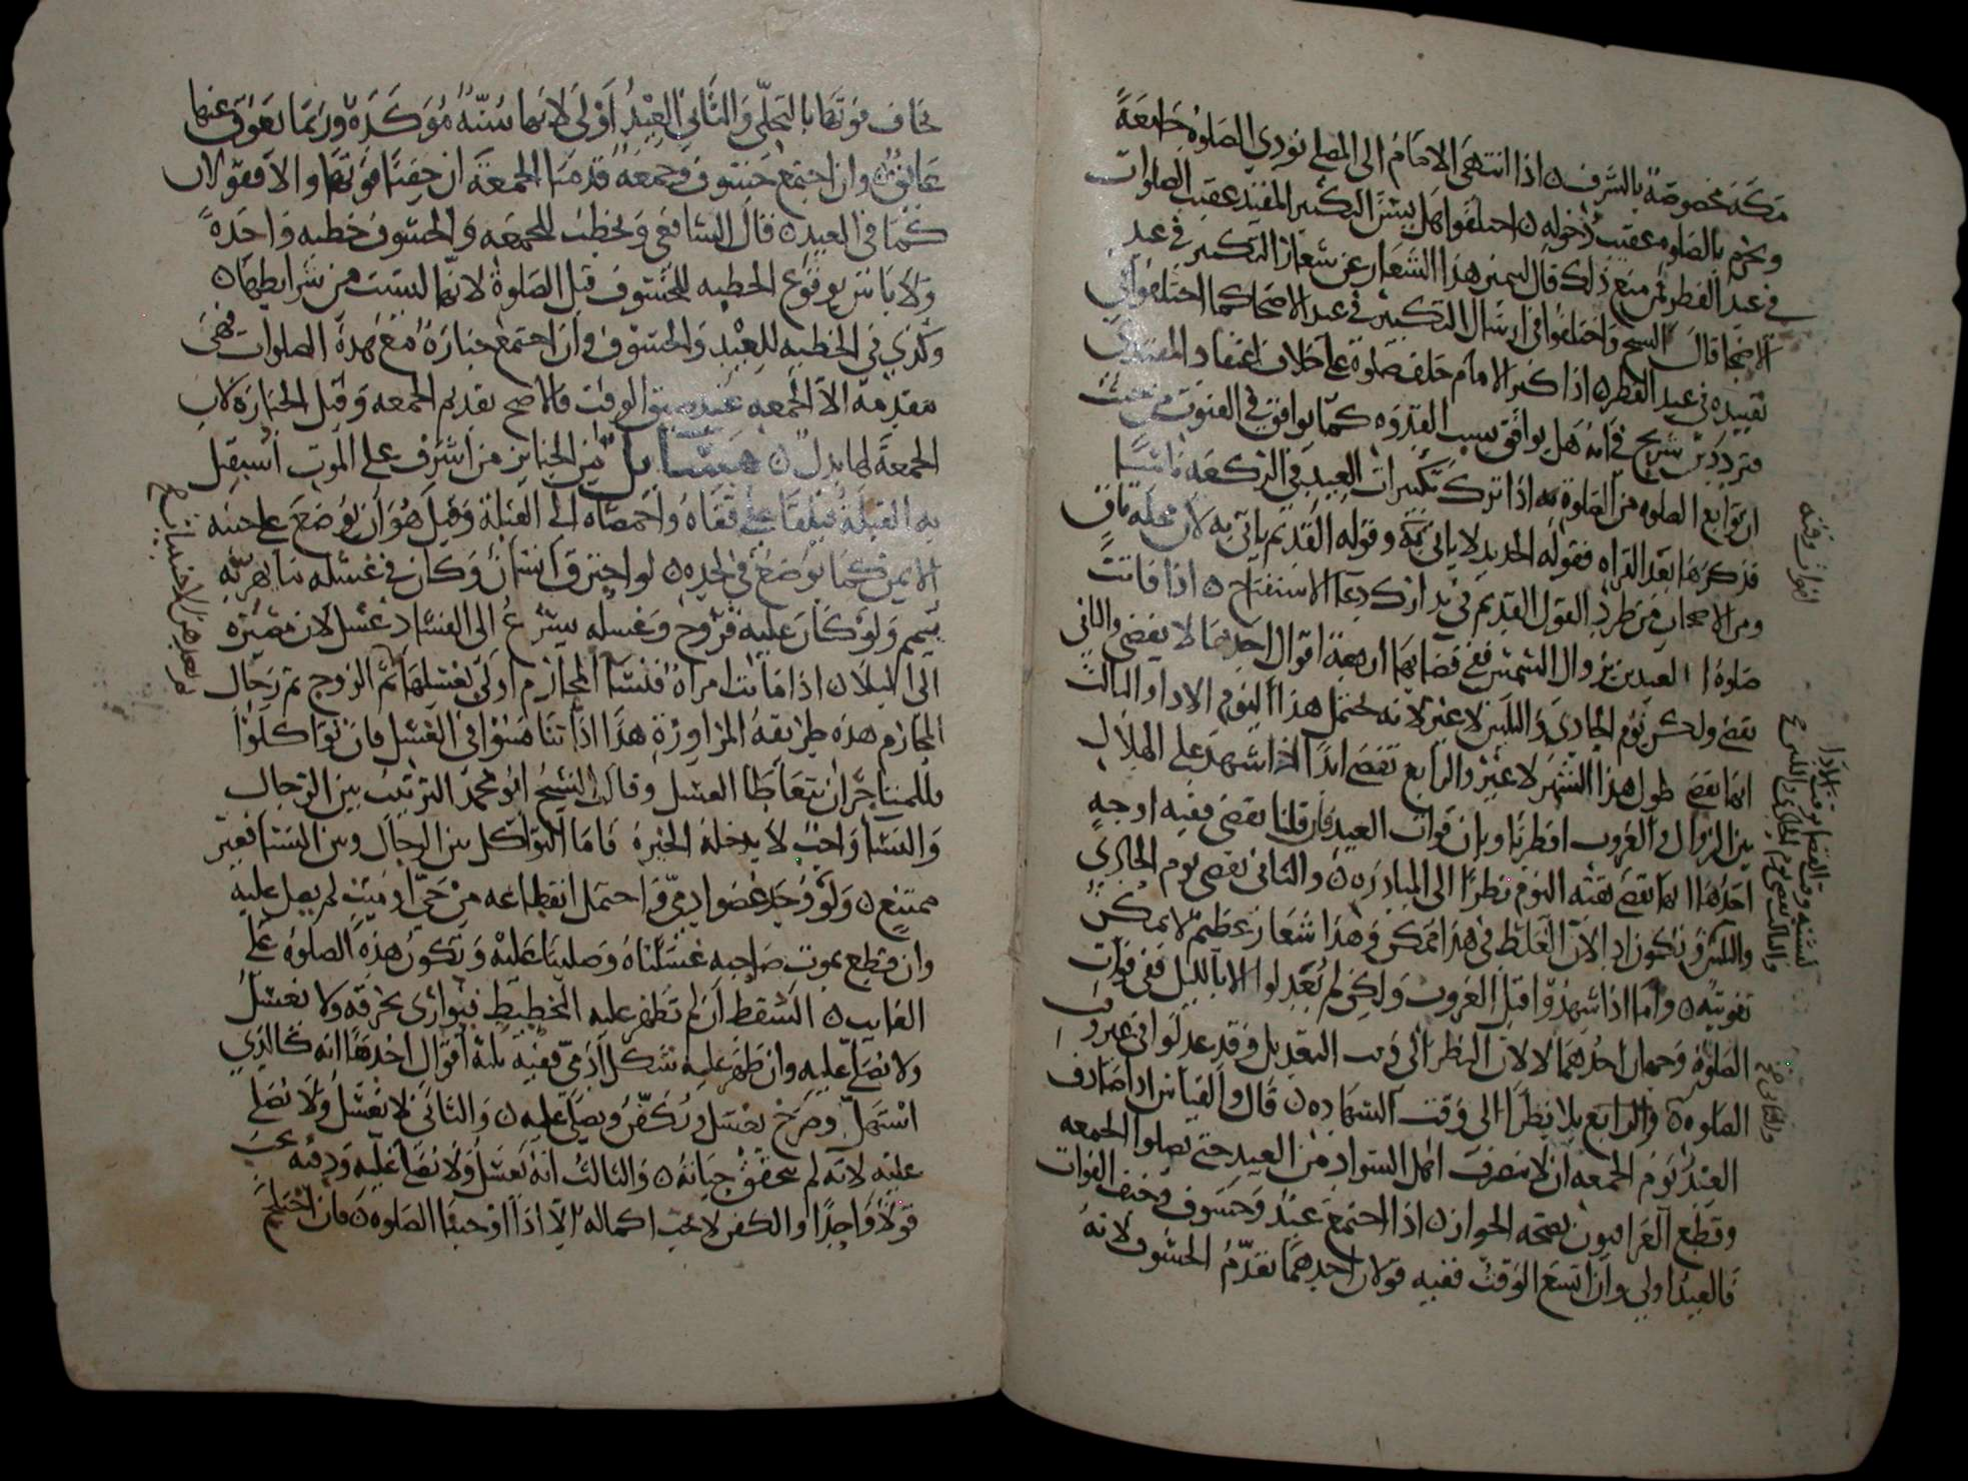 مكة مخصوصة بالشرف ٥ اذا انتهى الامام الى المصلى نودي الصلوة جامعةً
ويحرم بالصلوه عقيب دخوله ٥ اختلفوا هل يستحب التكبير المقيد عقيب الصلوات
في عيد الفطر ثم منع ذلك قال ليس هذا الشعار عن شعار التكبير في عيد
الاضحى قال الشيخ واختلفوا في ارسال التكبير في عيد الاضحا كما اختلفوا في
تقييده في عيد الفطر ٥ اذا كبر الامام خلف صلوة على خلاف اعتقاد المقتدي
فتردد بن سريج في انه هل يوافق بسبب القدوه كما يوافق في القنوت من حيث
ان توابع الصلوه من الصلوة مه اذا ترك تكبيرات العيد في الركعه ناسيًا
فذكرها بعد القراه فقوله الجديد لا ياتي به وقوله القديم ياتي به لان محله باقٍ
ومن الاصحاب من طرد القول القديم في تدارك دعا الاستفتاح ٥ اذا فاتت
صلوة العيدين بزوال الشمس ففي قضايها اربعة اقوال احدها لا يقضي والثاني
يقضي ولكن يوم الحادي والثلثين لا غير لانه يحتمل هذا اليوم الادا والثالث
انها تقضى طول هذا الشهر لا غير والرابع تقضى ابدًا ٥ اذا شهد على الهلال
بين الزوال والغروب افطرنا وبان فوات العيد فان قلنا يقضى ففيه اوجه
احدها انها تقضى بقية اليوم نظرًا الى المبادره ٥ والثاني يقضى يوم الحادي
والثلثين وتكون ادا لان الغلط في هذا ممكن وهذا شعار عظيم لا يمكن
تفويته ٥ واما اذا شهدوا قبل الغروب ولكن لم يعدلوا الا بالليل ففي فوات
الصلوة وجهان احدهما لا لان النظر الى وقت التعديل وقد عدلوا في غير وقت
الصلوه ٥ والرابع بلا نظرًا الى وقت الشهاده ٥ قال والقياس اذا صادف
العيد يوم الجمعه ان لا ينصرف اهل السواد من العيد حتى يصلوا الجمعه
وقطع العراقيون بصحه الجواز ٥ اذا اجتمع عيد وخسوف وخيف الفوات
فالعيد اولى وان اتسع الوقت ففيه قولان احدهما نقدم الخسوف لانه
يخاف فوتها بالتجلي والثاني العيد اولى لانها سنة مؤكدة وربما تعوق عنها
عايق ٥ وان اجتمع خسوف وجمعه قدمنا الجمعة ان خفنا فوتها والا فقولان
كما في العيد ٥ قال الشافعي ويخطب للجمعه والخسوف خطبه واحدةً
ولا باس بوقوع الخطبه للخسوف قبل الصلوة لانها ليست من شرايطها ٥
وكذي في الخطبه للعيد والخسوف وان اجتمع جنازة مع هذه الصلوات فهي
مقدمة الا الجمعه عند ضيق الوقت فالاصح تقديم الجمعه وقيل الجنازه لان
الجمعة لها بدل ٥ مسايل من الجنايز من اشرف على الموت استقبل
به القبلة فيلقا على قفاه واخمصاه الى القبلة وقيل هو ان يوضع على جنبه
الايمن كما يوضع في لحده ٥ لو احترق انسان وكان في غسله ما يهريه
يمم ولو كان عليه قروح وغسله يسرع الى الفساد غسل لان مصيره
الى البلا ٥ اذا ماتت امراة فنسا المحارم اولى بغسلها ثم الزوج ثم رجال
المحارم هذه طريقة المراوزة هذا اذا تنافسوا في الغسل فان تواكلوا
فللمستاجر ان يتعاطا الغسل وقال الشيخ ابو محمد الترتيب بين الرجال
والنسا واجب لا يدخله الخيرة فاما التواكل بين الرجال وبين النسا فغير
ممتنع ٥ ولو وجد عضو ادمي واحتمل انقطاعه من حي او ميت لم يصل عليه
وان قطع بموت صاحبه غسلناه وصلينا عليه وتكون هذه الصلوة على
الغايب ٥ السقط ان لم تظهر عليه التخطيط فيوارى بخرقه ولا يغسل
ولا يصلى عليه وان ظهر عليه شكل ادمي ففيه ثلثة اقوال احدها انه كالذي
استهل وصرخ يغسل ويكفن ويصلى عليه ٥ والثاني لا يغسل ولا يصلى
عليه لانه لم يتحقق حياته ٥ والثالث انه يغسل ولا يصلى عليه ودفنه يجب
قولاً واحدًا والكفن لا يجب اكماله الا اذا اوجبنا الصلوه ٥ فان اختلج